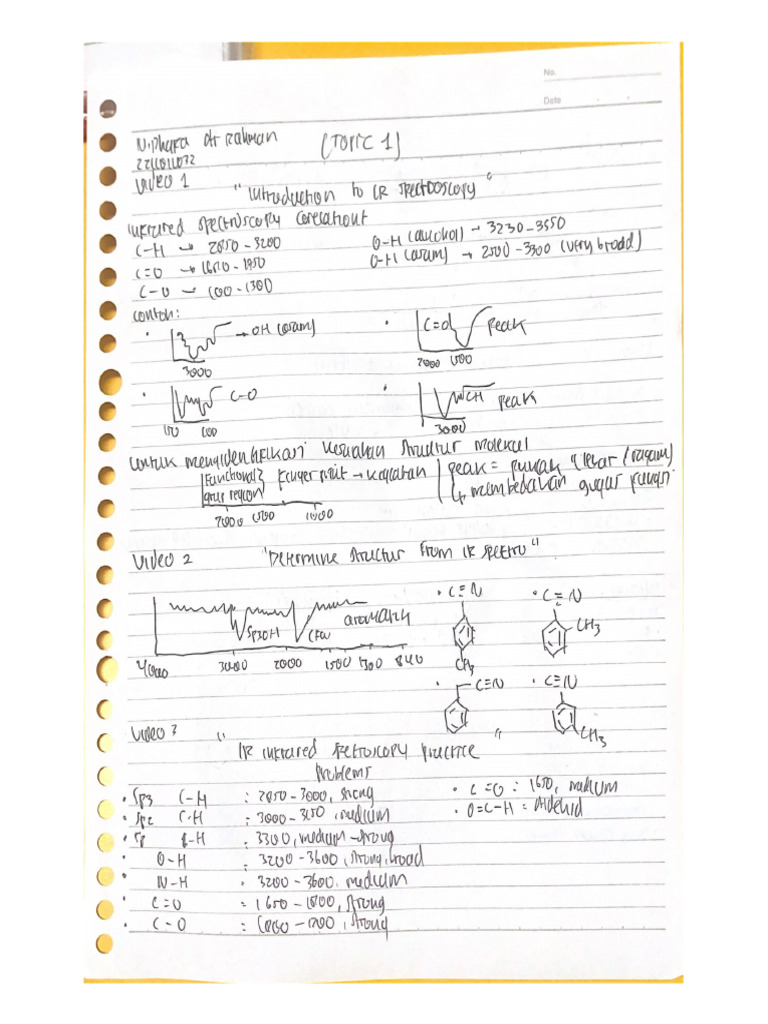 No.
Date
Ar Rahman (TOPIC 1)
2211011072
Video 1
"Introduction to IR Spectroscopy"
Infrared Spectroscopy
C-H → 2850 - 3200
O-H (alcohol) → 3230 - 3550
C=O → 1650 - 1850
O-H (asam) → 2500 - 3300 (very broad)
C-O →
Contoh:
→ OH (asam)
C=O Peak
3000
2000 1500
C-O
CH Peak
3000
Untuk mengidentifikasi struktur molekul
Functional
peak = puncak
membedakan gugus fungsi
2000 1500 1000
Video 2 "Determine Struktur From IR Spectro"
C≡N
C≡N
aromatik
CH3
4000 3000 2000 1500 1300 840
CH3
C≡N
C≡N
CH3
Video 3 "IR infrared spectroscopy practice
Problems"
Sp3 C-H : 2850 - 3000, strong
C=O : 1650, medium
Sp2 C-H : 3000 - 3150, medium
O=C-H = Aldehid
Sp C-H : 3300, medium - strong
O-H : 3200 - 3600, strong, broad
N-H : 3200 - 3600, medium
C=O : 1650 - 1800, strong
C-O : strong